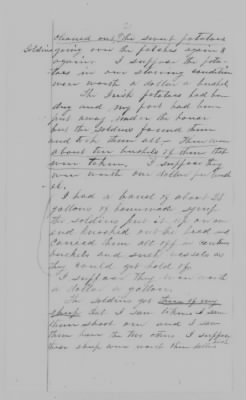 2
cleaned out, the sweet potatoes
Soldiers going over the patches again &
again. I suppose the pota-
toes in our starving condition
were worth a dollar a bushel.
The Irish potatoes had been
dug and my part had been
put away, in the house
but the soldiers found them
and took them all. There were
about ten bushels of them that
were taken. I suppose they
were worth one dollar per bush
el.
I had a barrel of about 33
gallons of homemade syrup.
The soldiers put it up on on
end and knocked out the head and
carried them all off in canteens
buckets and such vessels as
they could get hold of.
I suppose they were worth
a dollar a gallon.
The soldiers got three of my
sheep that I saw taken. I saw
them shoot one and I saw
them have the two others. I suppose
these sheep were worth three dollars